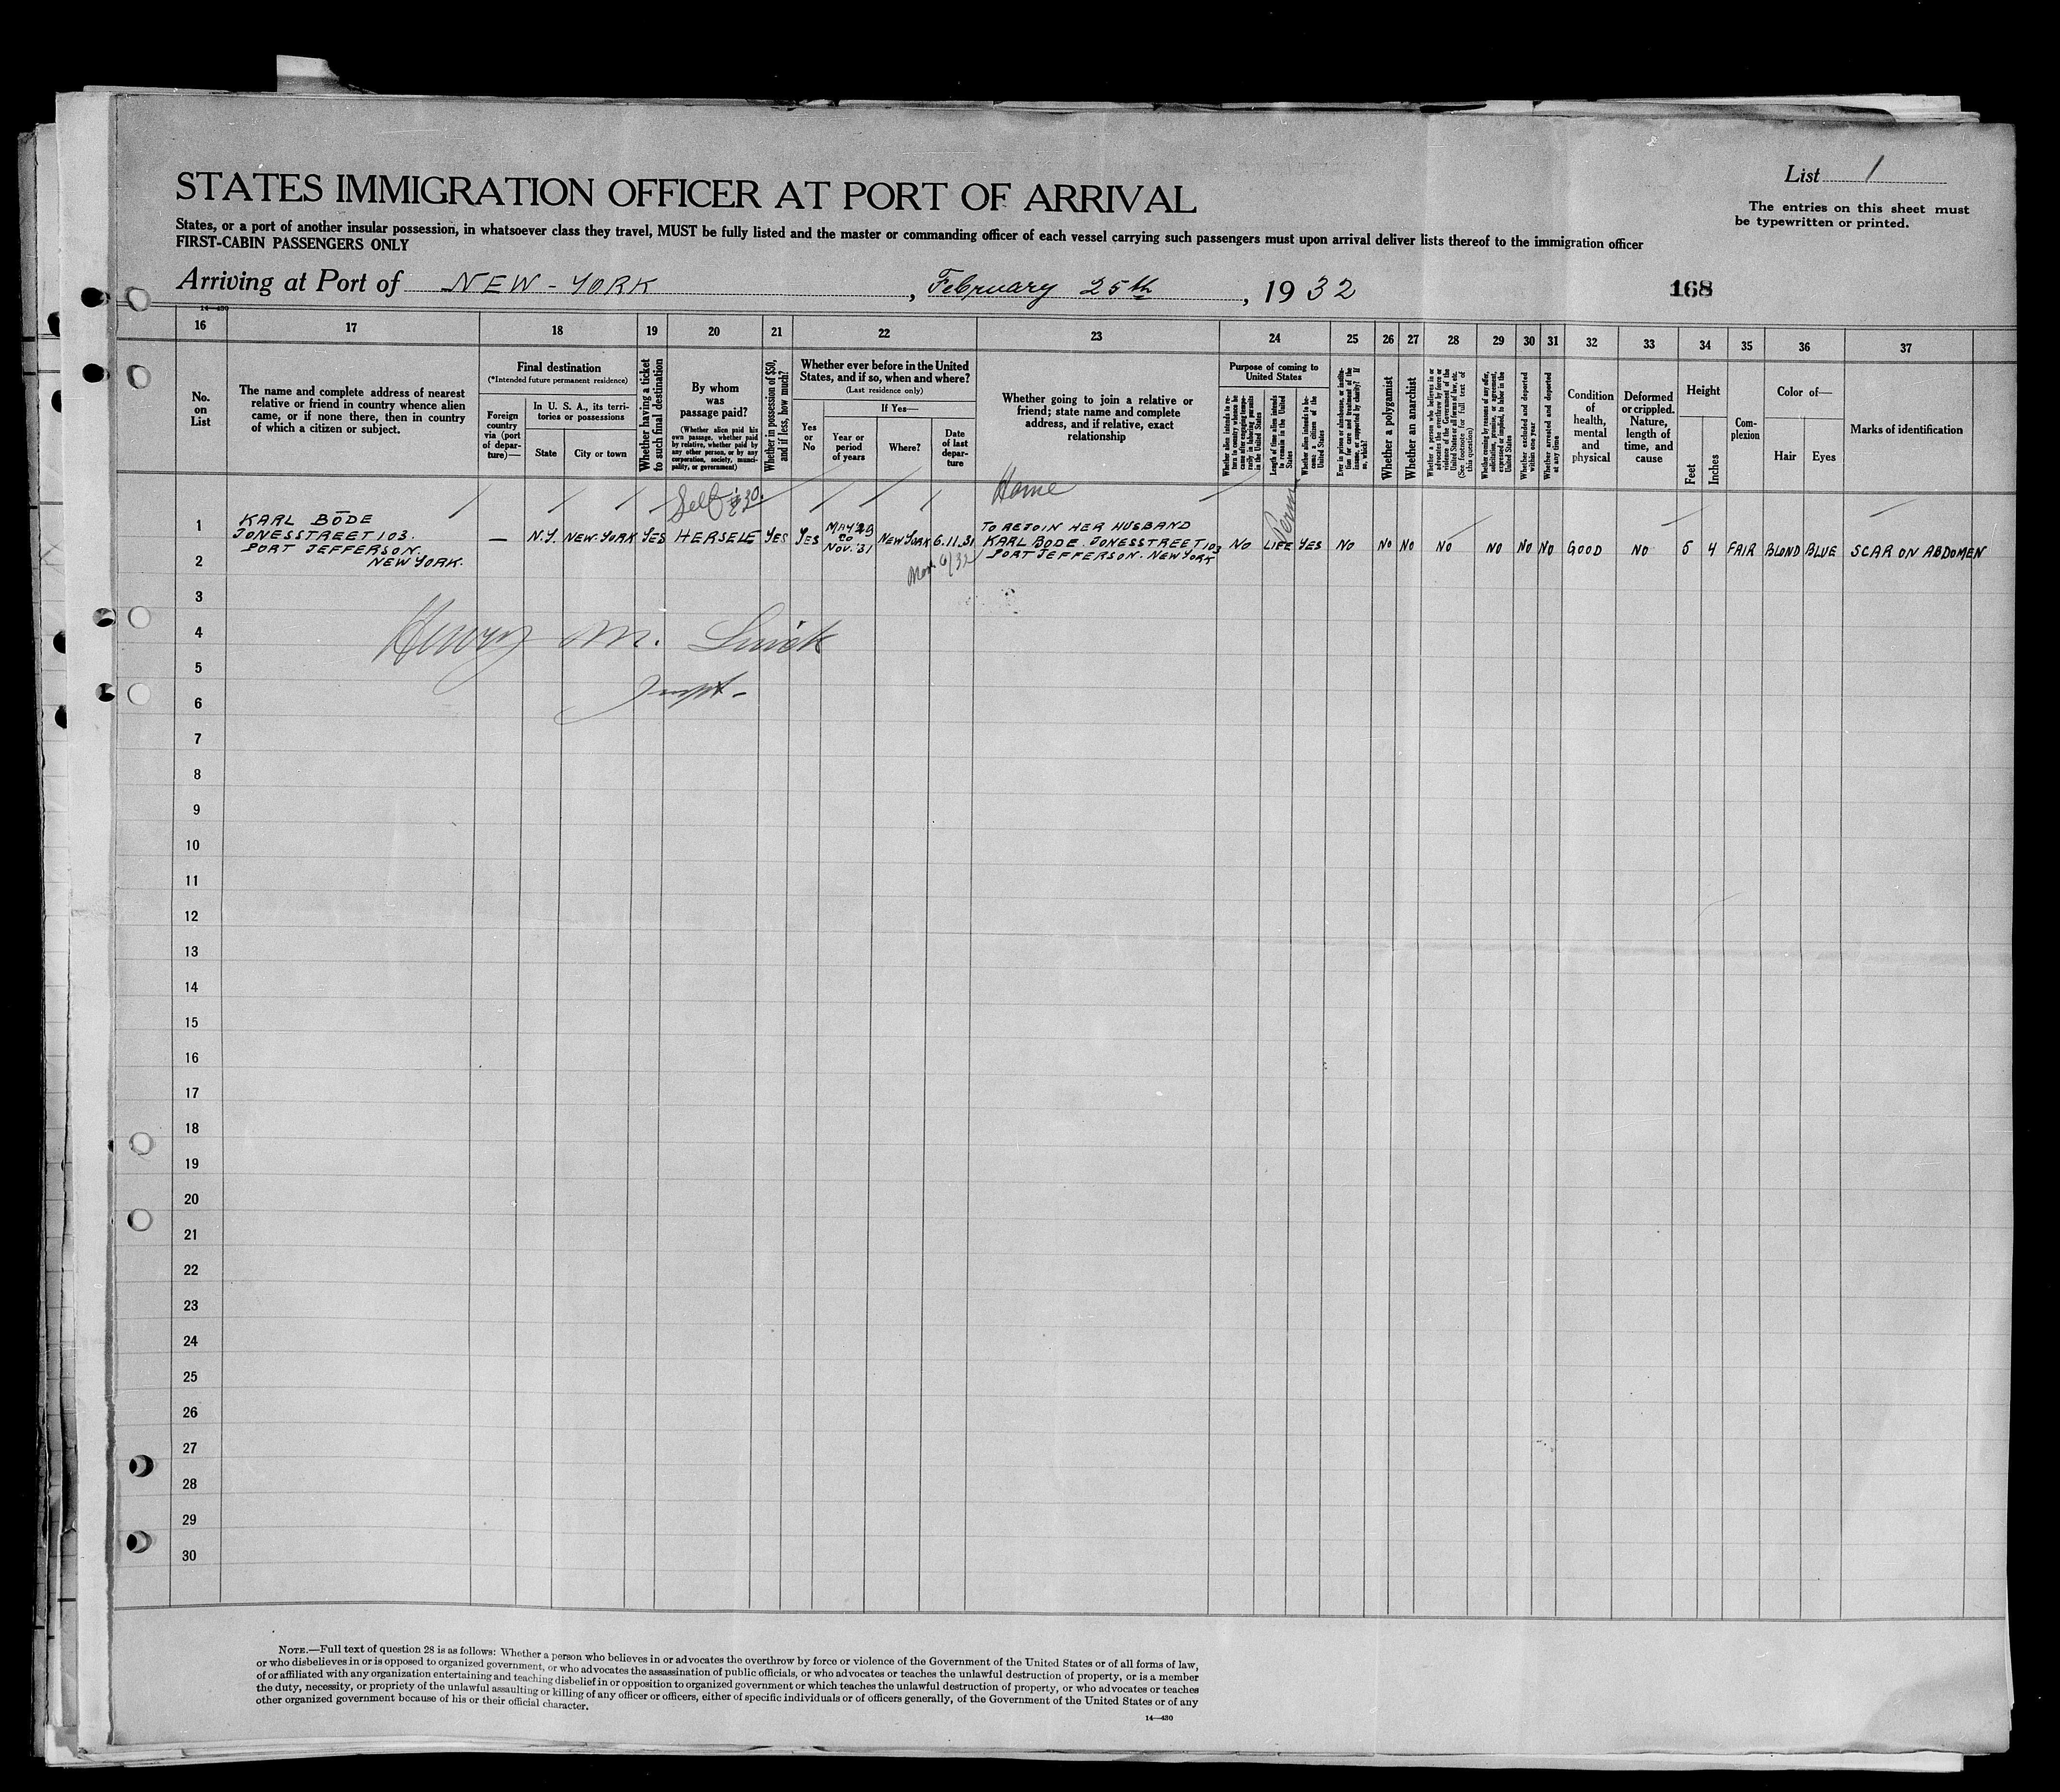 List 1
The entries on this sheet must
be typewritten or printed.
STATES IMMIGRATION OFFICER AT PORT OF ARRIVAL
States, or a port of another insular possession, in whatsoever class they travel, MUST be fully listed and the master or commanding officer of each vessel carrying such passengers must upon arrival deliver lists thereof to the immigration officer
FIRST-CABIN PASSENGERS ONLY
Arriving at Port of NEW-YORK, February 25th, 1932
168
14—430
16 17 18 19 20 21 22 23 24 25 26 27 28 29 30 31 32 33 34 35 36 37
No.
on
List
The name and complete address of nearest
relative or friend in country whence alien
came, or if none there, then in country
of which a citizen or subject.
Final destination
(*Intended future permanent residence)
Foreign
country
via (port
of depar-
ture)—
In U. S. A., its terri-
tories or possessions
State
City or town
Whether having a ticket
to such final destination
By whom
was
passage paid?
(Whether alien paid his
own passage, whether paid
by relative, whether paid by
any other person, or by any
corporation, society, munici-
pality, or government)
Whether in possession of $50,
and if less, how much?
Whether ever before in the United
States, and if so, when and where?
(Last residence only)
Yes
or
No
If Yes—
Year or
period
of years
Where?
Date
of last
depar-
ture
Whether going to join a relative or
friend; state name and complete
address, and if relative, exact
relationship
Purpose of coming to
United States
Whether alien intends to re-
turn to country whence he
came after engaging tempo-
rarily in laboring pursuits
in the United States
Length of time alien intends
to remain in the United
States
Whether alien intends to be-
come a citizen of the
United States
Ever in prison or almshouse, or institu-
tion for care and treatment of the
insane, or supported by charity? If
so, which?
Whether a polygamist
Whether an anarchist
Whether a person who believes in or
advocates the overthrow by force or
violence of the Government of the
United States or all forms of law, etc.
(See footnote for full text of
this question)
Whether coming by reason of any offer,
solicitation, promise, or agreement,
expressed or implied, to labor in the
United States
Whether excluded and deported
within one year
Whether arrested and deported
at any time
Condition
of
health,
mental
and
physical
Deformed
or crippled.
Nature,
length of
time, and
cause
Height
Feet
Inches
Com-
plexion
Color of—
Hair
Eyes
Marks of identification
Self $30.
Home
Perm
1
KARL BÖDE
JONESSTREET 103.
PORT JEFFERSON.
NEW YORK.
— N.Y. NEW-YORK YES HERSELF YES YES
MAY '29
to
NOV. '31
NEW YORK 6.11.31
TO REJOIN HER HUSBAND
KARL BODE. JONESSTREET 103
PORT JEFFERSON. NEW YORK
NO LIFE YES NO NO NO NO NO NO NO GOOD NO 5 4 FAIR BLOND BLUE SCAR ON ABDOMEN
2
3
Henry M.
4
5
6
7
8
9
10
11
12
13
14
15
16
17
18
19
20
21
22
23
24
25
26
27
28
29
30
NOTE.—Full text of question 28 is as follows: Whether a person who believes in or advocates the overthrow by force or violence of the Government of the United States or of all forms of law,
or who disbelieves in or is opposed to organized government, or who advocates the assassination of public officials, or who advocates or teaches the unlawful destruction of property, or is a member
of or affiliated with any organization entertaining and teaching disbelief in or opposition to organized government or which teaches the unlawful destruction of property, or who advocates or teaches
the duty, necessity, or propriety of the unlawful assaulting or killing of any officer or officers, either of specific individuals or of officers generally, of the Government of the United States or of any
other organized government because of his or their official character.
14—430